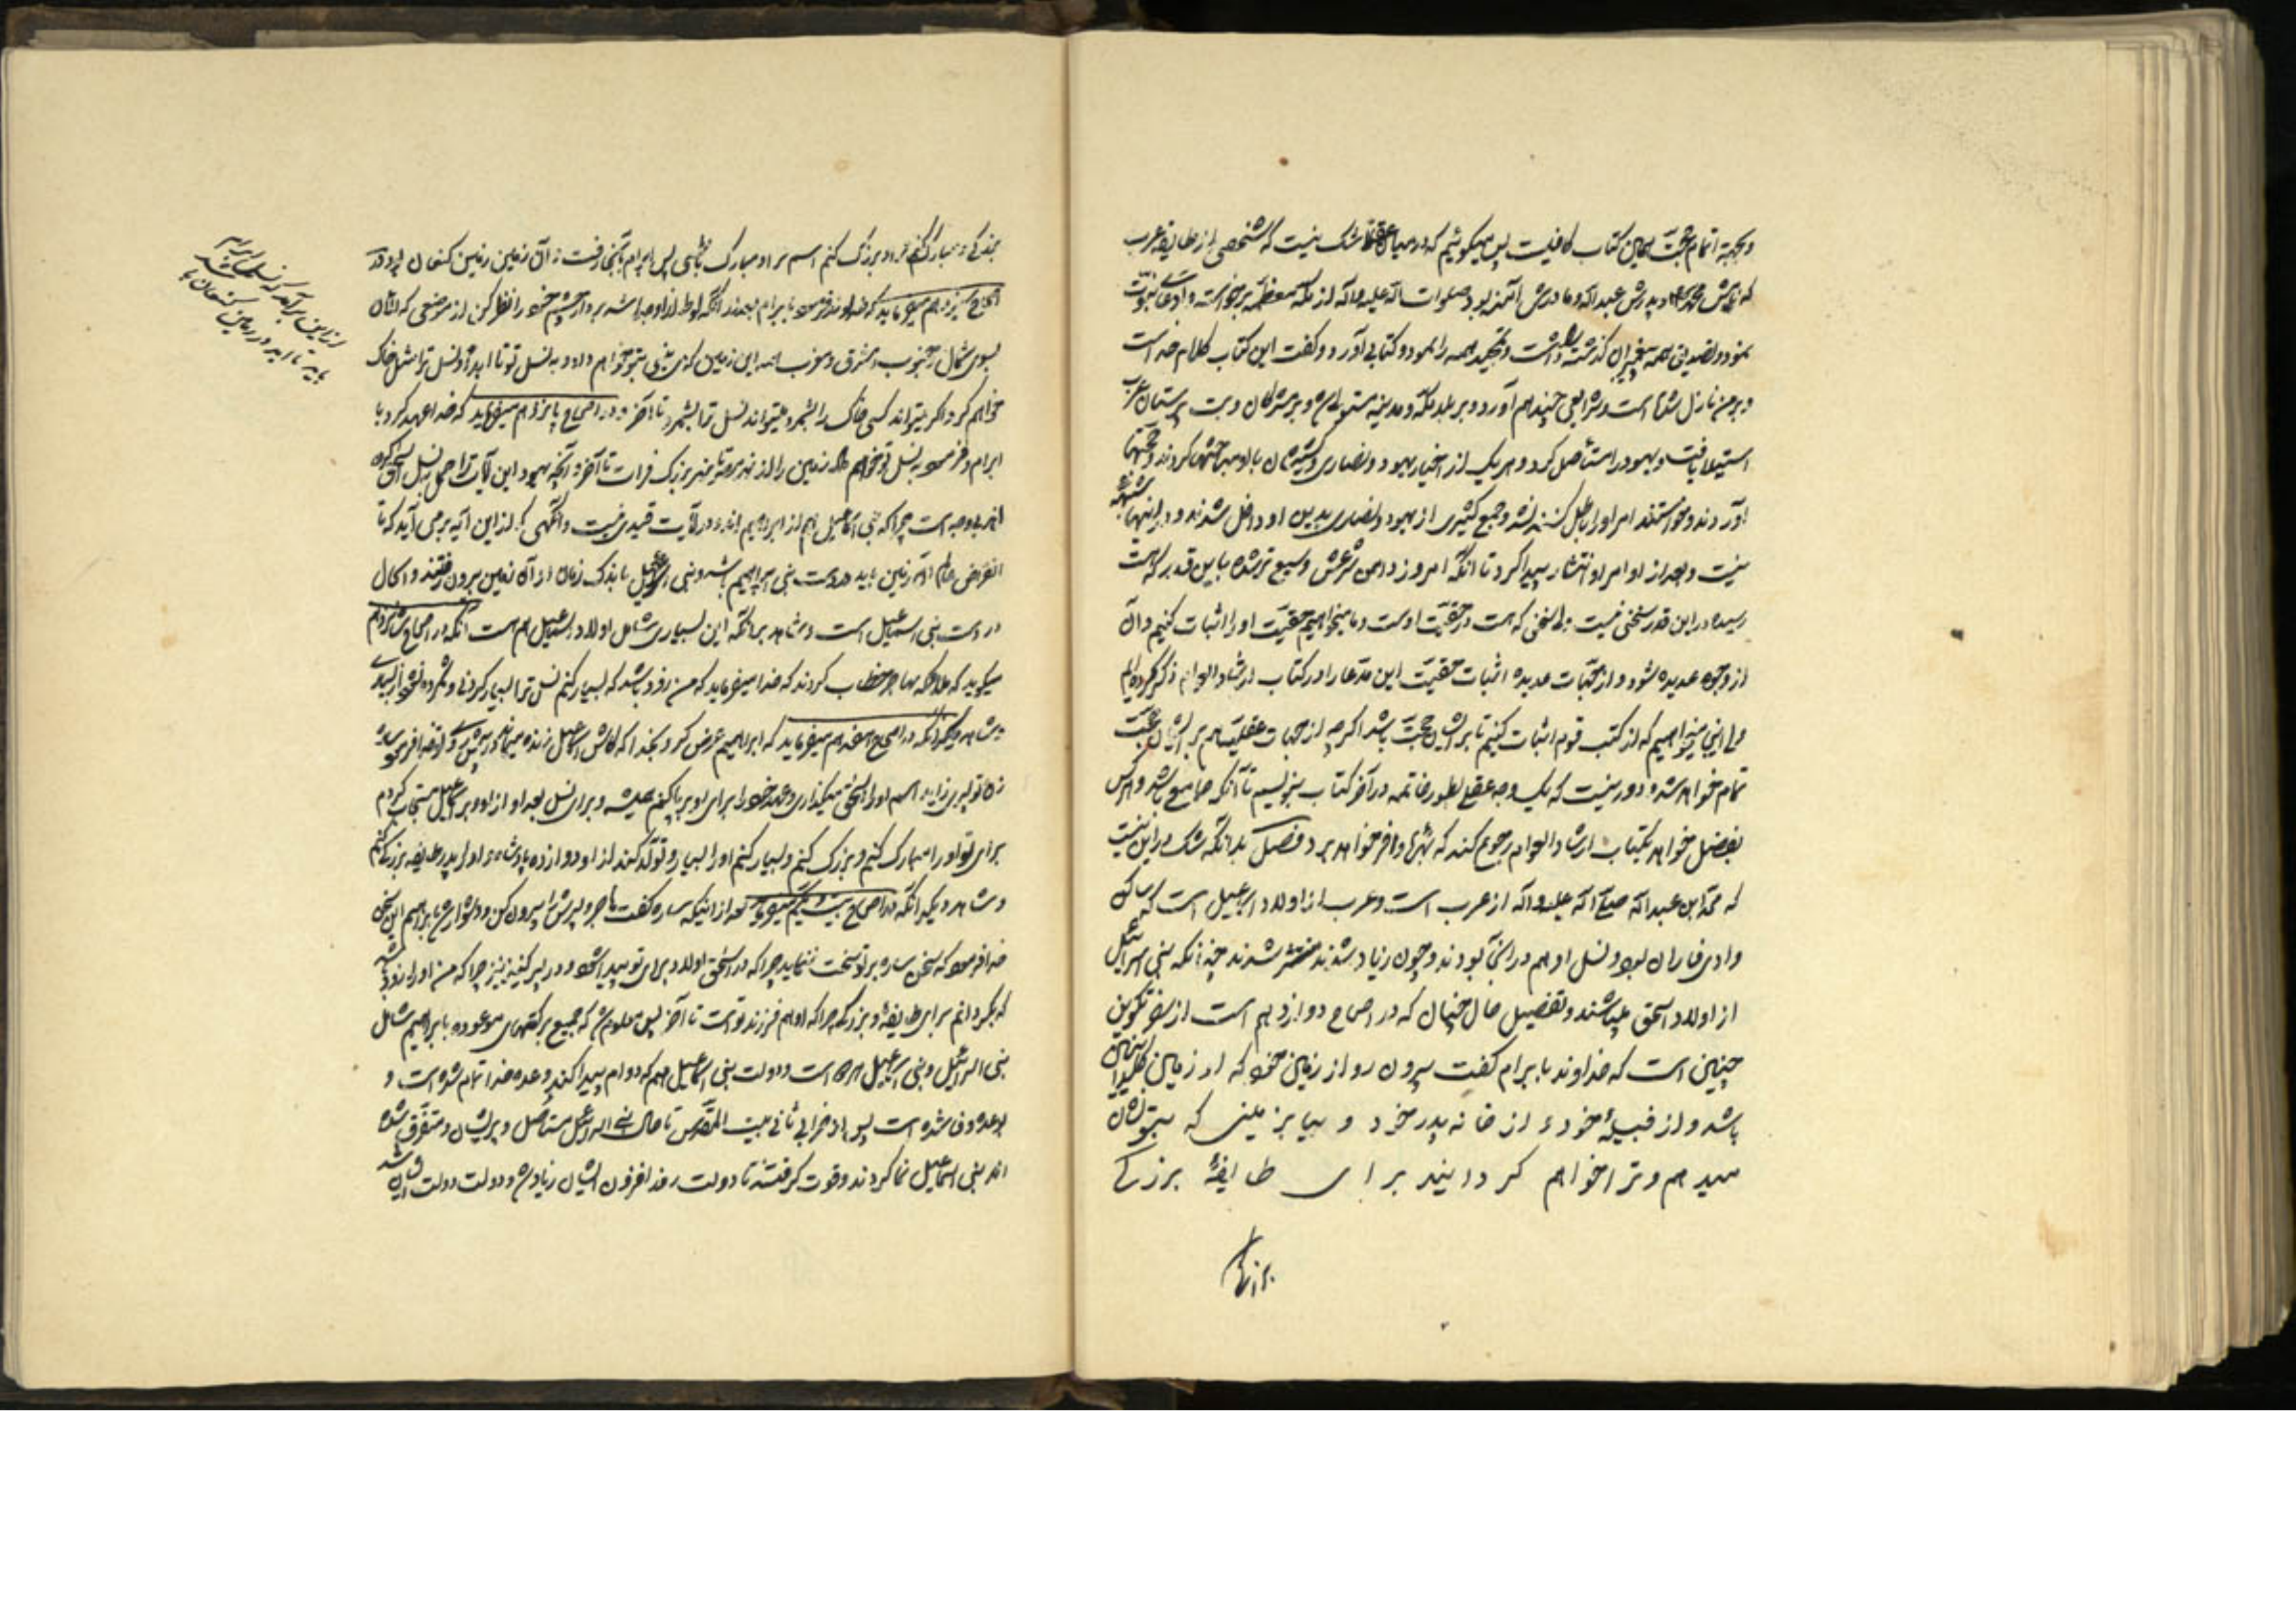 و بجهة اتمام حجت همین کتاب کافیست پس میگوئیم که در میان عقلا شک نیست که شخصی از طایفه عرب
که نامش محمد و پدرش عبدالله و مادرش آمنه بود صلوات الله علیه و آله از مکه معظمه برخواست و ادعای نبوت
نمود و تصدیق همه پیغمبران گذشته داشت و تمجید همه را نمود و کتابی آورد و گفت این کتاب کلام خداست
و بر من نازل شده است و شرایعی چند هم آورد و بر بلد مکه و مدینه مستولی شد و بر مشرکان و بت پرستان عرب
استیلا یافت و یهود را مستأصل کرد و هر یک از احبار یهود و نصاری و کشیشان با او مباحثها کردند و حجتها
آوردند و خواستند امر او را باطل کنند نشد و جمع کثیری از یهود و نصاری بدین او داخل شدند و در اینها شبهه
نیست و بعد از او امر او انتشار پیدا کرد تا آنکه امروز دامن شرعش وسیع تر شده باین قدر که هست
رسیده در این قدر سخنی نیست بلی سخنی که هست در حقیت اوست و ما میخواهیم حقیت او را اثبات کنیم و آن
از وجوه عدیده شود و از جهات عدیده اثبات حقیت این مدعا را در کتاب ارشاد العوام ذکر کرده ایم
ولی اینجا میخواهیم که از کتب قوم اثبات کنیم تا بر ایشان حجت باشد اگرچه از جهات عقلیه هم بر ایشان حجت
تمام خواهد شد و دور نیست که یک وجه عقلی بطور خاتمه در آخر کتاب بنویسیم تا آنکه جامع باشد و هر کس
تفصیل خواهد بکتاب ارشاد العوام رجوع کند که بهرهٔ وافر خواهد برد فصل بدانکه شک در این نیست
که محمد ابن عبدالله صلی الله علیه و آله از عرب است و عرب از اولاد اسمعیل است که ساکن
وادی فاران بود و نسل او هم در آنجا بودند و چون زیاد شدند منتشر شدند چنانکه بنی اسرائیل
از اولاد اسحق میباشند و تفصیل حال چنان که در اصحاح دوازدهم است از سفر تکوین
چنین است که خداوند بابرام گفت بیرون رو از زمین خود که از زمین کلدانیین
باشد و از قبیلهٔ خود و از خانه پدر خود و بیا بزمینی که بتو نشان
میدهم و ترا خواهم گردانید برای طایفهٔ بزرگی
بزرگی و مبارک کنم ترا و بزرگ کنم اسم ترا و مبارک باشی پس ابرام بآنجا رفت و آن زمین زمین کنعان بود و در
اصحاح سیزدهم میفرماید که خداوند فرمود بابرام بعد از آنکه لوط از او جدا شد بردار چشم خود را نظر کن از موضعی که الآن
بسوی شمال و جنوب و مشرق و مغرب همه این زمین که می بینی بتو خواهم داد و به نسل تو تا ابد و نسل ترا مثل خاک
خواهم کرد و اگر میتواند کسی خاک را بشمرد میتواند نسل ترا بشمرد تا آخر و در اصحاح پانزدهم میفرماید که خدا عهد کرد با
ابرام و فرمود به نسل تو خواهم داد زمین را از نهر مصر تا نهر بزرگ فرات تا آخر و آنچه یهود این آیات را حمل بنسل اسحق کرده
اند بی وجه است چرا که بنی اسمعیل هم از ابراهیم اند و در آیات قیدی نیست وانگهی که از این آیه بر می آید که تا
انقراض عالم آن زمین باید در دست بنی ابراهیم باشد و بنی اسرائیل باندک زمان از آن زمین بیرون رفتند و الحال
در دست بنی اسمعیل است و شاهد بر آنکه این بسیاری شامل اولاد اسمعیل هم هست آنکه در اصحاح شانزدهم
میگوید که ملائکه بهاجر خطاب کردند که خدا میفرماید که من زود باشد که بسیار کنم نسل ترا بسیار کردنی و شمرده نشود از بسیاری
و شاهد دیگر آنکه در اصحاح هفدهم میفرماید که ابراهیم عرض کرد بخدا که کاش اسمعیل زنده میماند در پیش تو خدا فرمود ساره
زن تو پسری زاید و اسم او را اسحق میگذاری و عهد خود را برای او بر پا کنم همیشه و برای نسل بعد او از او و بر اسمعیل مستجاب کردم
برای تو او را مبارک کنم و بزرگ کنم و بسیار کنم او را بسیار و تولد کند از او دوازده پادشاه و او را پدر طایفه بزرگ کنم
و شاهد دیگر آنکه در اصحاح بیست و یکم میفرماید بعد از اینکه ساره گفت هاجر و پسرش را بیرون کن و دشوار شد بابراهیم این سخن
خدا فرمود که سخن ساره بر تو سخت ننماید چرا که در اسحق اولاد برای تو پیدا شود و در پسر کنیز نیز چرا که من او را زود باشد
که بگردانم برای طایفهٔ بزرگ چرا که او هم فرزند تو است تا آخر پس معلوم شد که جمیع برکتهای موعوده بابراهیم شامل
بنی اسرائیل و بنی اسمعیل هر دو است و دولت بنی اسمعیل هم که دوام پیدا کند وعده خدا تمام شده است و
بوعده وفا شده است پس از خرابی ثانی بیت المقدس تا حال بنی اسرائیل مستأصل و پریشان و متفرق شده
اند بنی اسمعیل نما کردند و قوت گرفتند تا دولت روز افزون ایشان زیاد شد و دولت دولت ایشان شد
از این برآمد که نسل ابراهیم
باید تا ابد در زمین کنعان